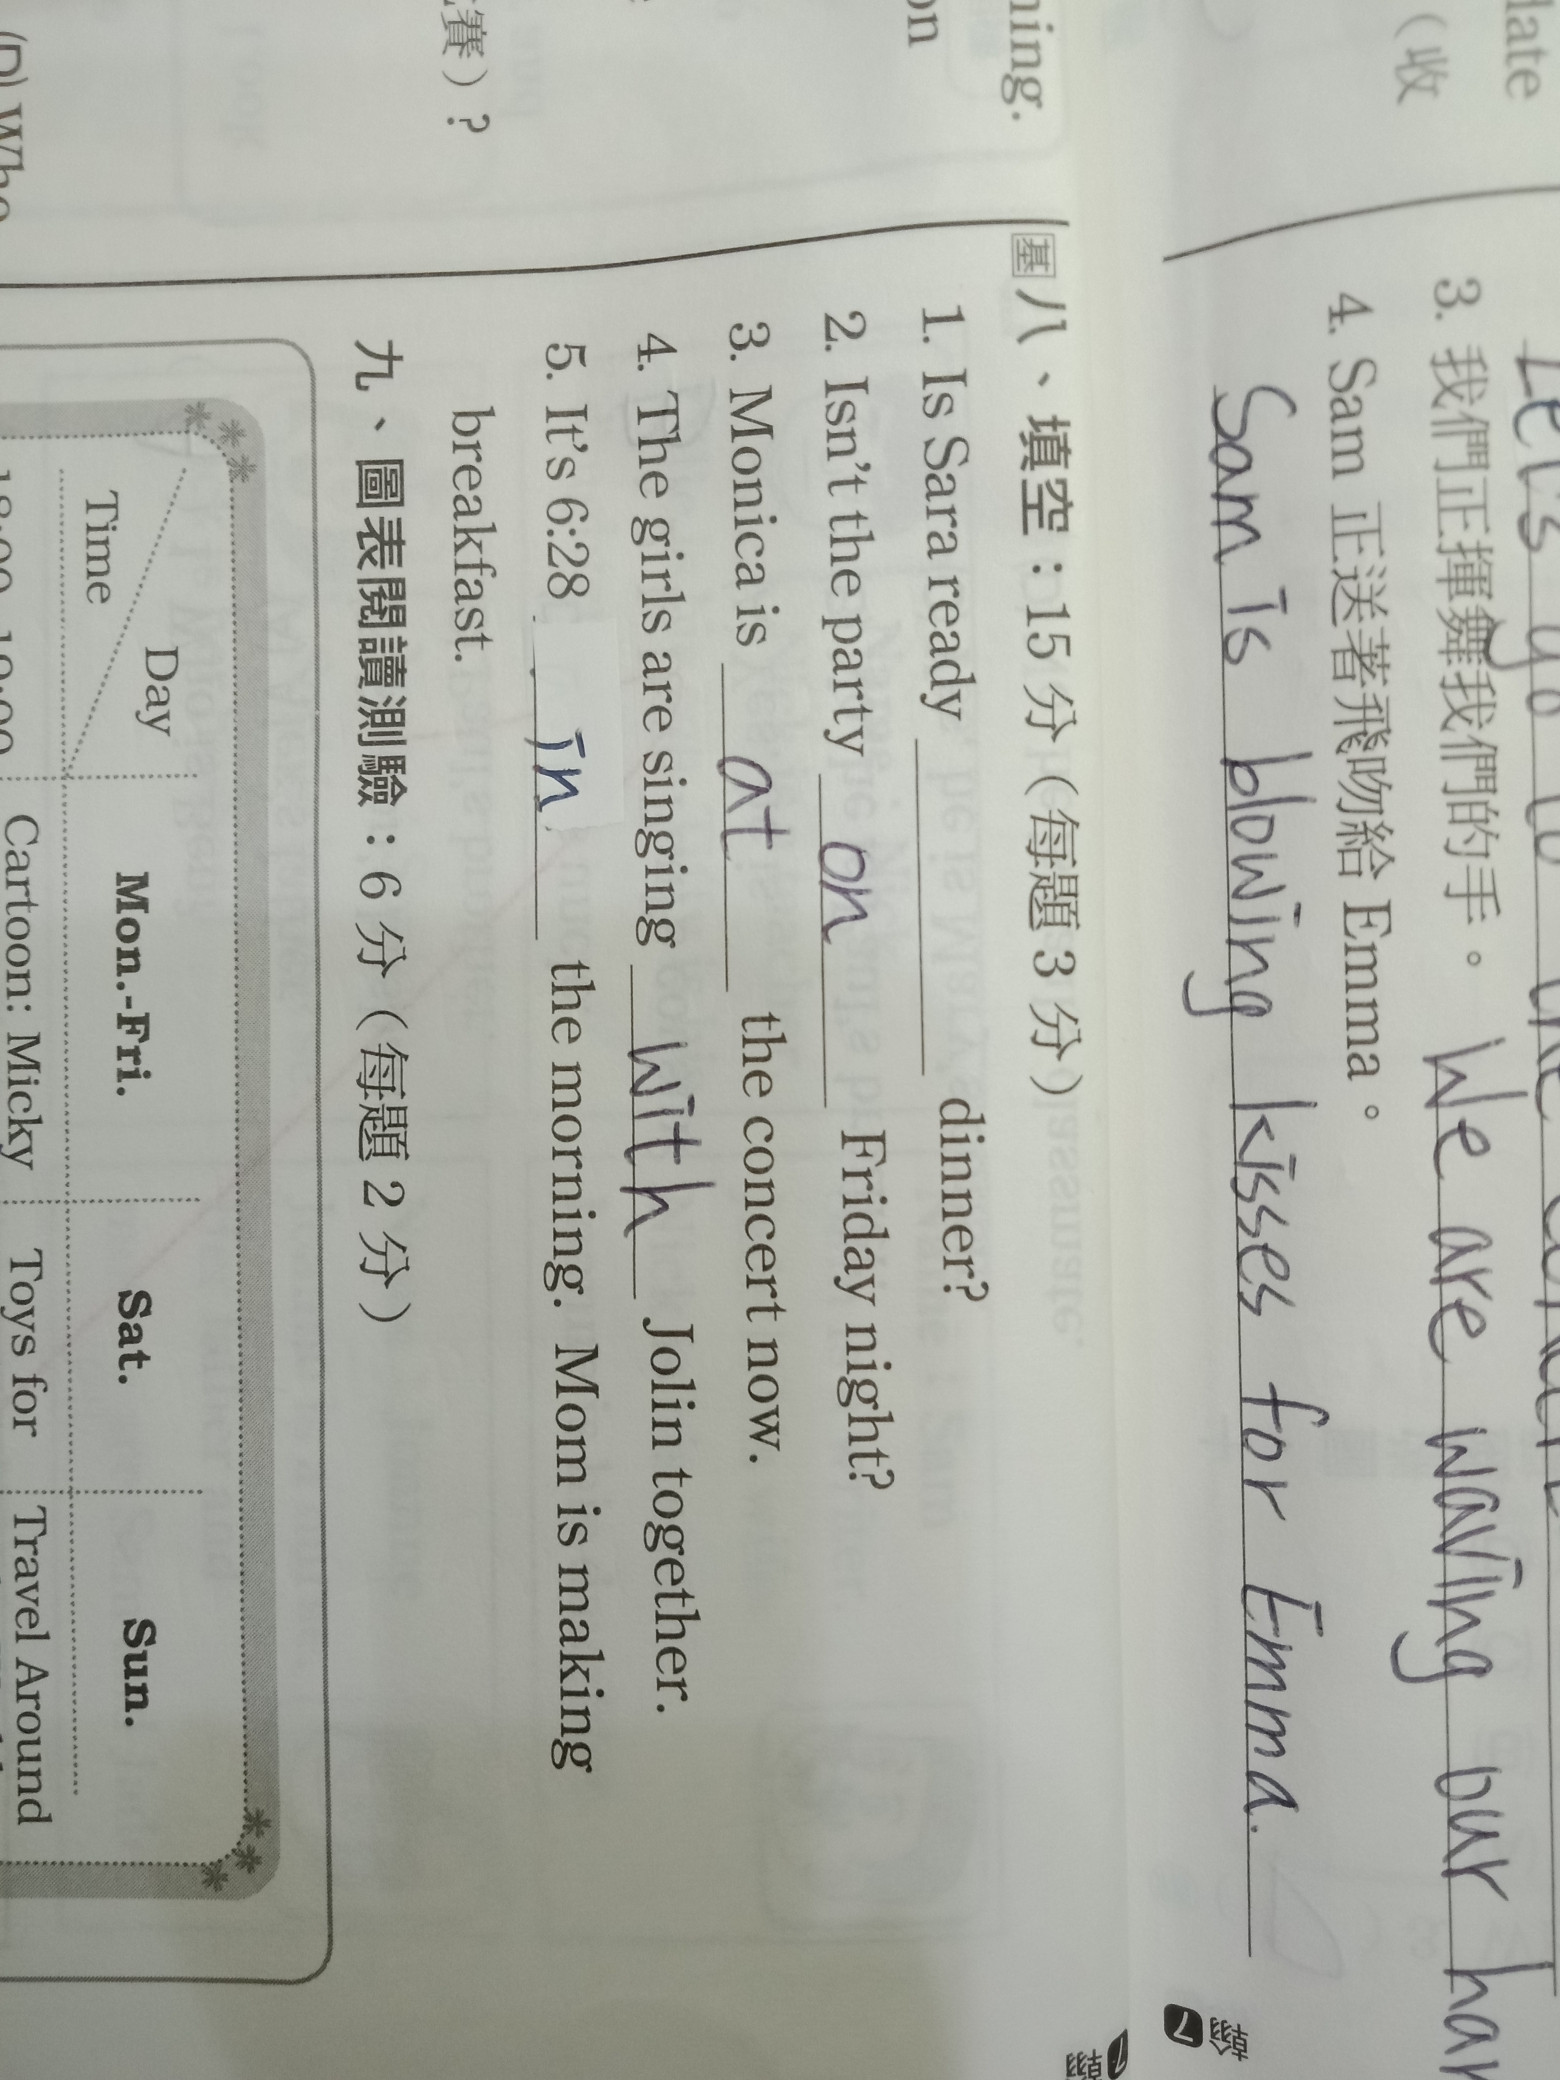 late
（收
3. 我們正揮舞我們的手。 We are waving our
4. Sam 正送著飛吻給 Emma。
Sam is blowing kisses for Emma.
翰
7
ning.
on
賽）?
基 八、填空：15 分（每題 3 分）
1. Is Sara ready ______ dinner?
2. Isn't the party on Friday night?
3. Monica is at the concert now.
4. The girls are singing with Jolin together.
5. It's 6:28 in the morning. Mom is making
breakfast.
九、圖表閱讀測驗：6 分（每題 2 分）
Day
Time
Mon.-Fri. Sat. Sun.
Cartoon: Micky Toys for Travel Around
翰